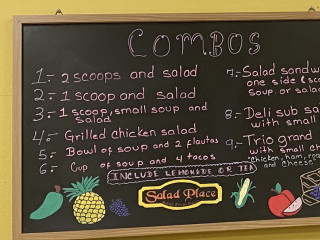 COMBOS
1.- 2 scoops and salad
2.- 1 scoop and salad
3.- 1 scoop, small soup and
Salad
4.- Grilled chicken salad
5.- Bowl of soup and 2 flautas
6.- Cup of soup and 4 tacos
7.- Salad sand
one side
soup. or sala
8.- Deli sub sa
with small
9.- Trio grand
with small ch
"Chicken, ham,
and Cheese
INCLUDE LEMONADE OR TEA
Salad Place